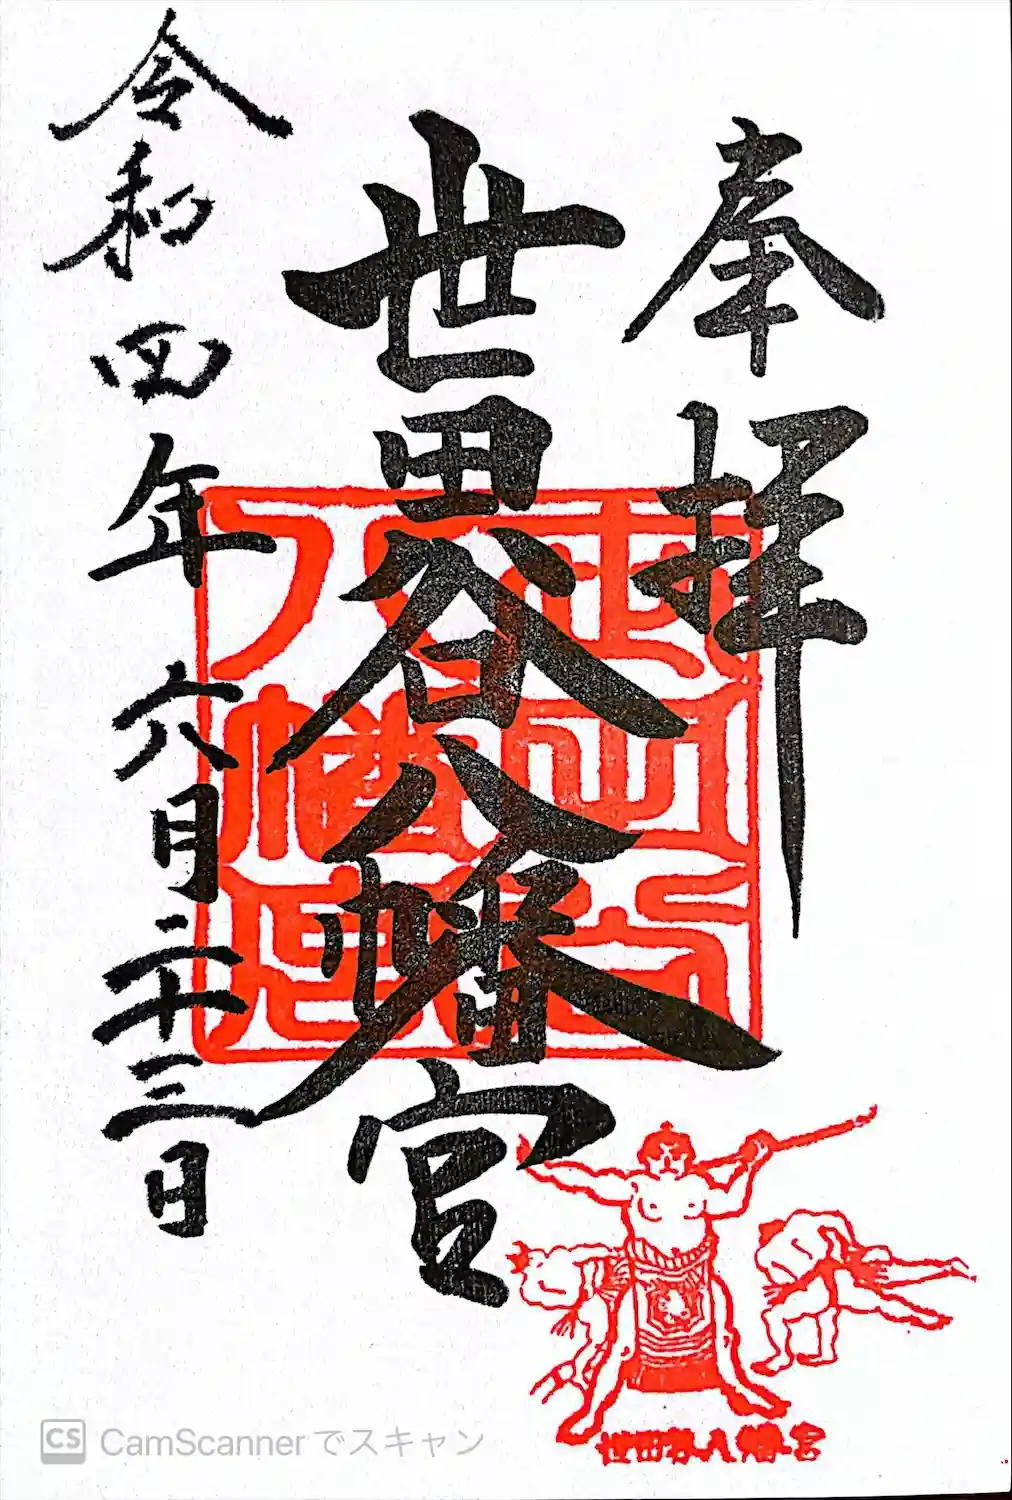 奉拝
世田谷八幡宮
令和四年六月二十三日
世田谷八幡宮
CS CamScannerでスキャン